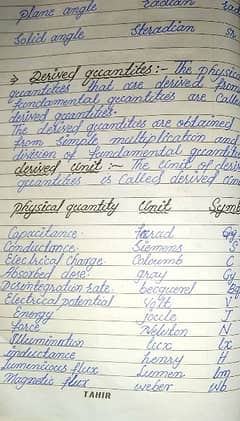 Plane angle Radian rad
Solid angle Steradian sr
⇒ Derived quantites :- The physica
quantities that are derived from
fundamental quantities are Calle
derived quantities.
The derived quantities are obtained
from Simple multiplication and
division of fundamental quantit
derived unit :- The Unit of deriv
quantities is Called derived Uni
Physical quantity Unit Symb
Capacitance Farad
Conductance Siemens S
Electrical Charge Coloumb C
Absorbed dose gray Gy
Desintegration rate becquerel Bq
Electrical potential Volt V
Energy joule J
force Newton N
Illumination lux lx
inductance henry H
Lumencious flux Lumen lm
Magnetic flux weber Wb
TAHIR